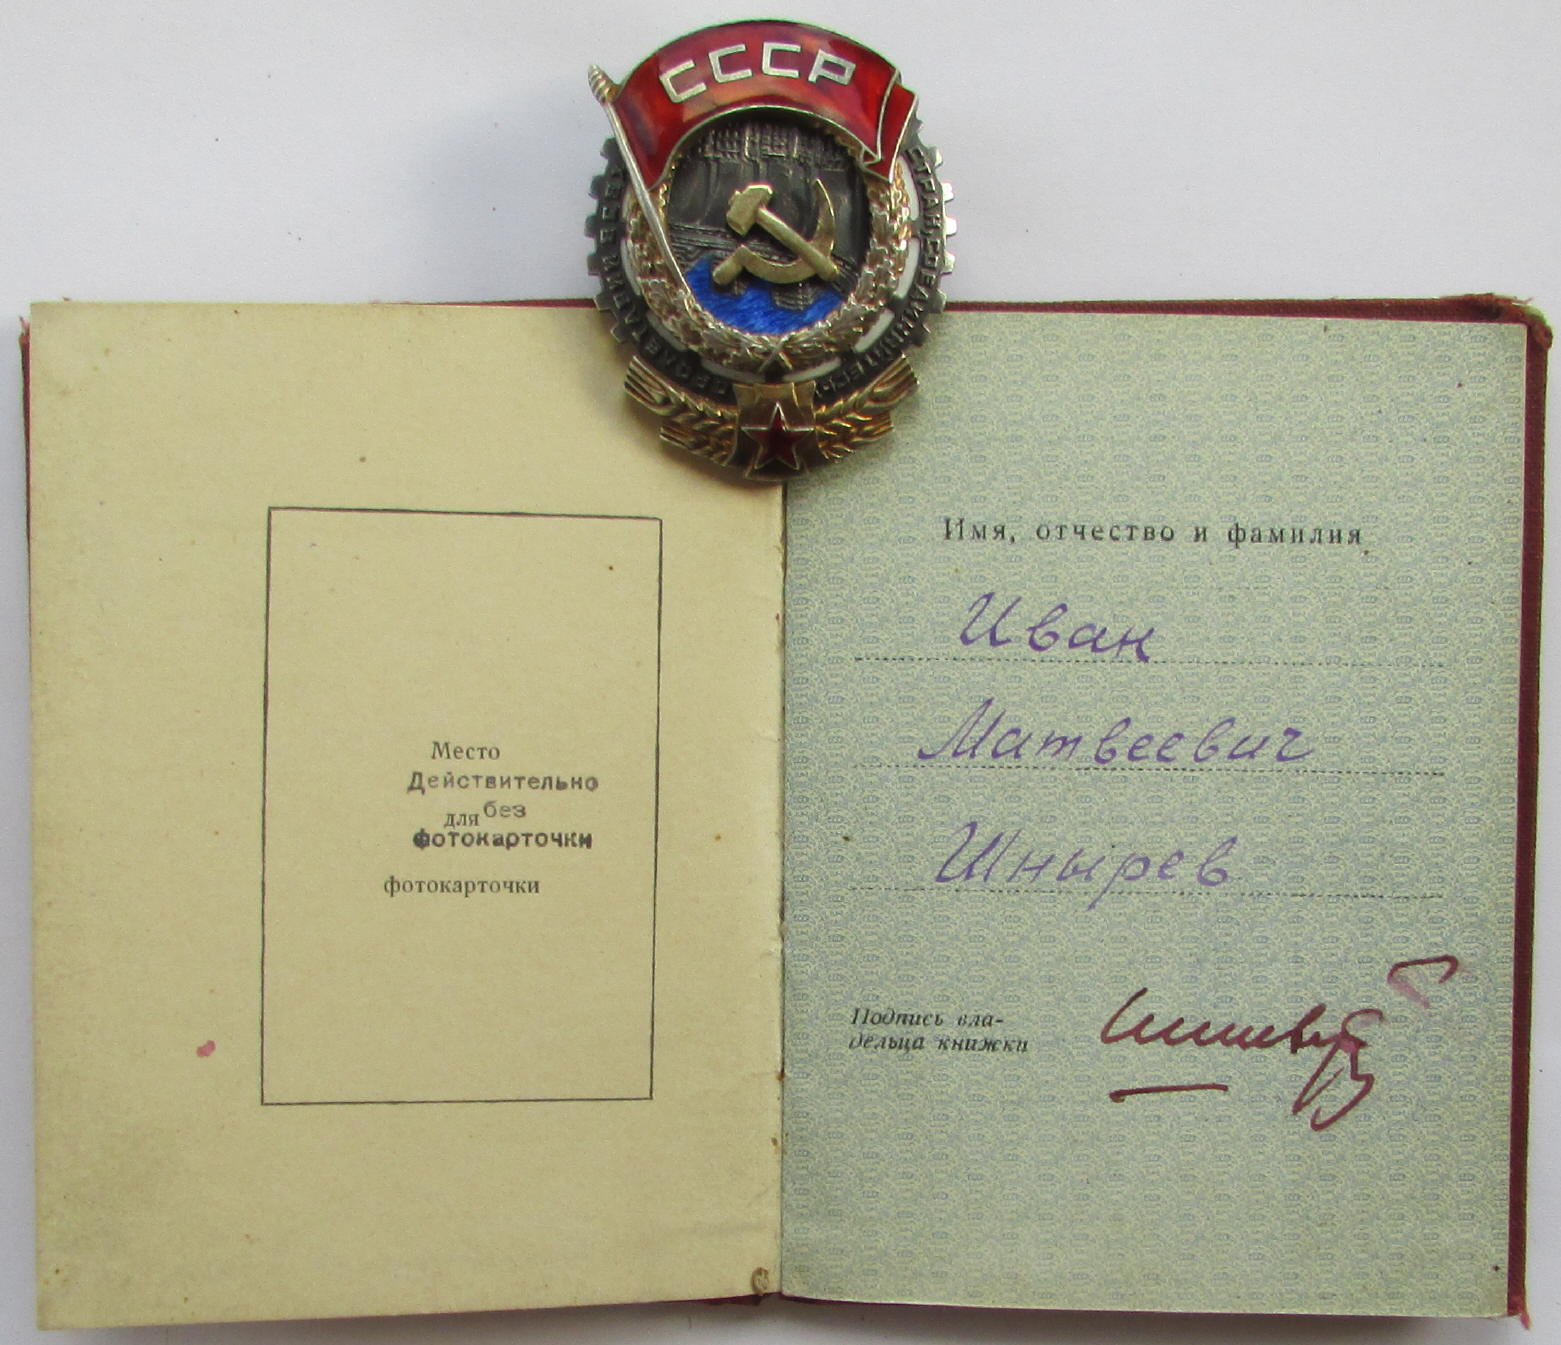 СССР
ПРОЛЕТАРИИ ВСЕХ СТРАН, СОЕДИНЯЙТЕСЬ!
Место
Действительно
для без
фотокарточки
фотокарточки
Имя, отчество и фамилия
Иван
Матвеевич
Шнырев
Подпись вла-
дельца книжки